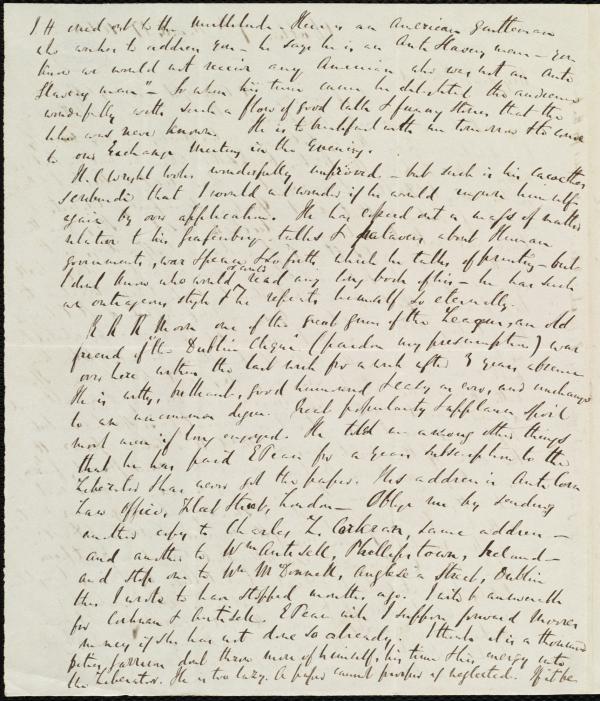 cried out to the multitude. Here is an American gentleman
who wishes to address you - he says he is an Anti Slavery man - you
know we would not receive any American who was not an Anti
Slavery man" - So when his time came he delighted the audience
wonderfully with such a flow of good talk & funny stories that the
like was never known. He is to breakfast with me tomorrow & to come
to our Exchange Meeting in the Evening.
H. C. Wright looks wonderfully improved - but such is his cacoethes
scribendi that I would not wonder if he would injure himself
again by over application. He has a mass of matter
relative to his Grafenberg talks & about Human
governments, war & peace & so forth which he talks of printing - but
I dont know who would read any long book of his - he has such
an outrageous style & he repeats himself so eternally.
R R R Moore one of the great guns of the League, an old
friend of the Dublin Clique (pardon my presumption) was
over here within the last week for a week after 3 years absence
He is witty, brilliant, good humoured & as ever, and unchanged
to an uncommon degree. Great popularity & applause spoil
most men if long enjoyed. He told me among other things
that he has paid E Pease for a years subscription to the
Liberator & has never got the paper. His address is Anti Corn
Law Office, Fleet Street, London - Oblige me by sending
another copy to Charles L. Corkran, same address -
and another to Wm Antisell, Phillipstown, Ireland -
and stop one to Wm McDonnell, Anglesea Street, Dublin
this I wrote to have stopped months ago. I will be answerable
for Corkran & Antisell. E Pease will I suppose forward Moores
money if she has not done so already. I think it is a thousand
pities Garrison dont throw more of himself, his time & his energy into
the Liberator. He is too lazy. A paper cannot prosper if neglected. If it be